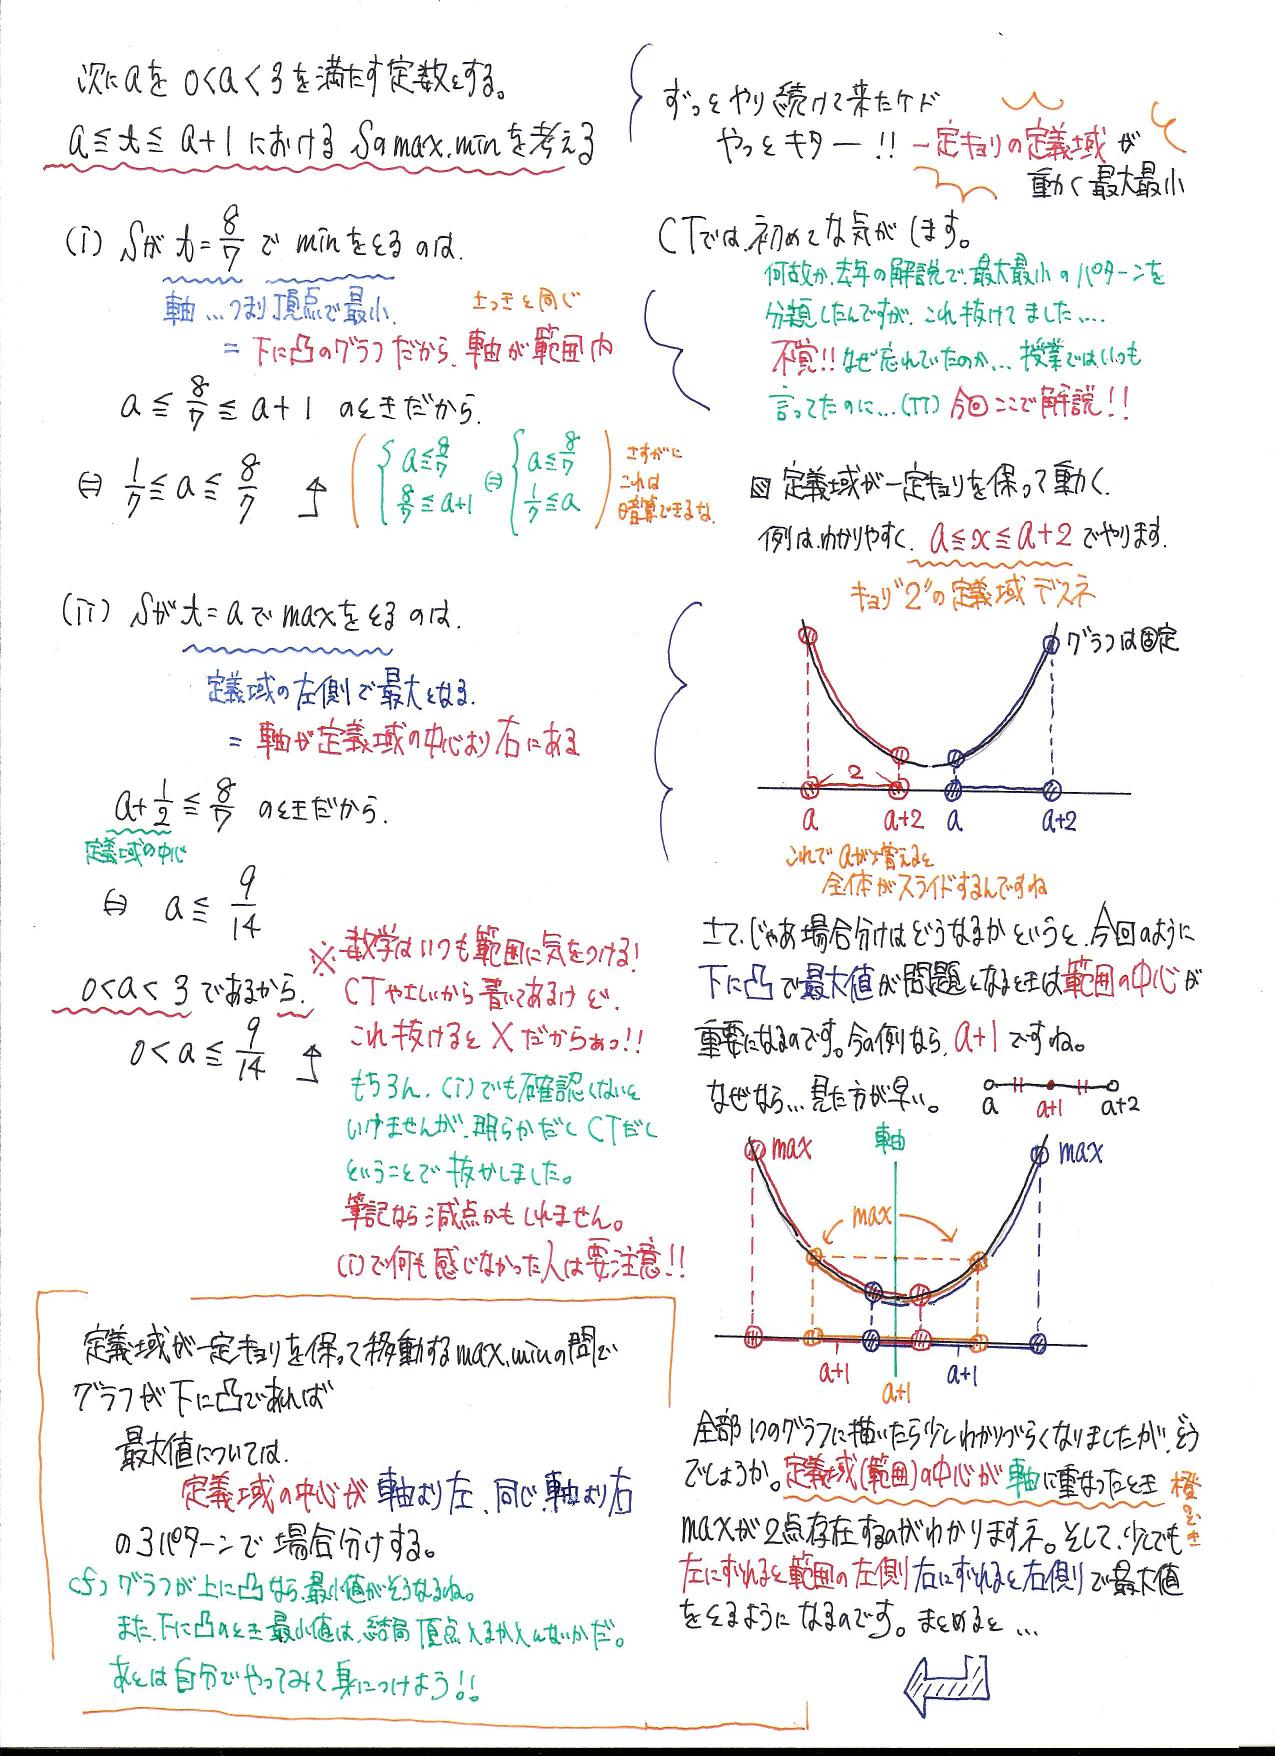 次にaを 0<a<3を満たす定数とする。
a≦t≦a+1における Sのmax.minを考える
(i) Sが t=8/7 で minをとるのは.
軸…つまり頂点で最小.
さっきと同じ
= 下に凸のグラフだから、軸が範囲内
a≦8/7≦a+1 のときだから.
⇔ 1/7≦a≦8/7
a≦8/7
8/7≦a+1
⇔
a≦8/7
1/7≦a
さすがに
これは
暗算できるな.
(ii) Sが t=aで maxをとるのは.
定義域の左側で最大となる.
= 軸が定義域の中心より右にある
a+1/2≦8/7 のときだから.
定義域の中心
⇔ a≦9/14
0<a<3であるから.
0<a≦9/14
※ 数学はいつも範囲に気をつける!
CTやさしいから書いてあるけど.
これ抜けると×だからぁっ!!
もちろん.(i)でも確認しないと
いけませんが.明らかだしCTだし
ということで抜かしました。
筆記なら減点かもしれません。
(i)で何も感じなかった人は要注意!!
定義域が一定キョリを保って移動するmax.minの問で
グラフが下に凸であれば
最大値については.
定義域の中心が 軸より左、同じ、軸より右
の3パターンで場合分けする。
cf) グラフが上に凸なら、最小値がそうなるね。
また、下に凸のとき最小値は、結局頂点とるかとんないかだ。
あとは自分でやってみて身につけよう!!
ずっとやり続けて来たケド
やっとキター!! 一定キョリの定義域が
動く最大最小
CTでは、初めてな気がします。
何故か、去年の解説で、最大最小のパターンを
分類したんですが、これ抜けてました….
不覚!!なぜ忘れていたのか… 授業ではいつも
言ってたのに…(TT) 今回ここで解説!!
定義域が一定キョリを保って動く.
例は、わかりやすく、a≦x≦a+2でやります.
キョリ"2"の定義域デスネ
グラフは固定
2
a a+2 a a+2
これでaが増えると
全体がスライドするんですね
さて、じゃあ場合分けはどうなるかというと、今回のように
下に凸で最大値が問題となるときは範囲の中心が
重要になるのです。今の例なら、a+1ですね。
なぜなら…見た方が早い。
a a+1 a+2
max 軸 max
max
a+1 a+1 a+1
全部1つのグラフに描いたら少しわかりづらくなりましたが、どう
でしょうか。定義域(範囲)の中心が軸に重なったとき
橙のとき
maxが2点存在するのがわかりますネ。そして、少しでも
左にずれると範囲の左側 右にずれると右側で最大値
をとるようになるのです。まとめると…